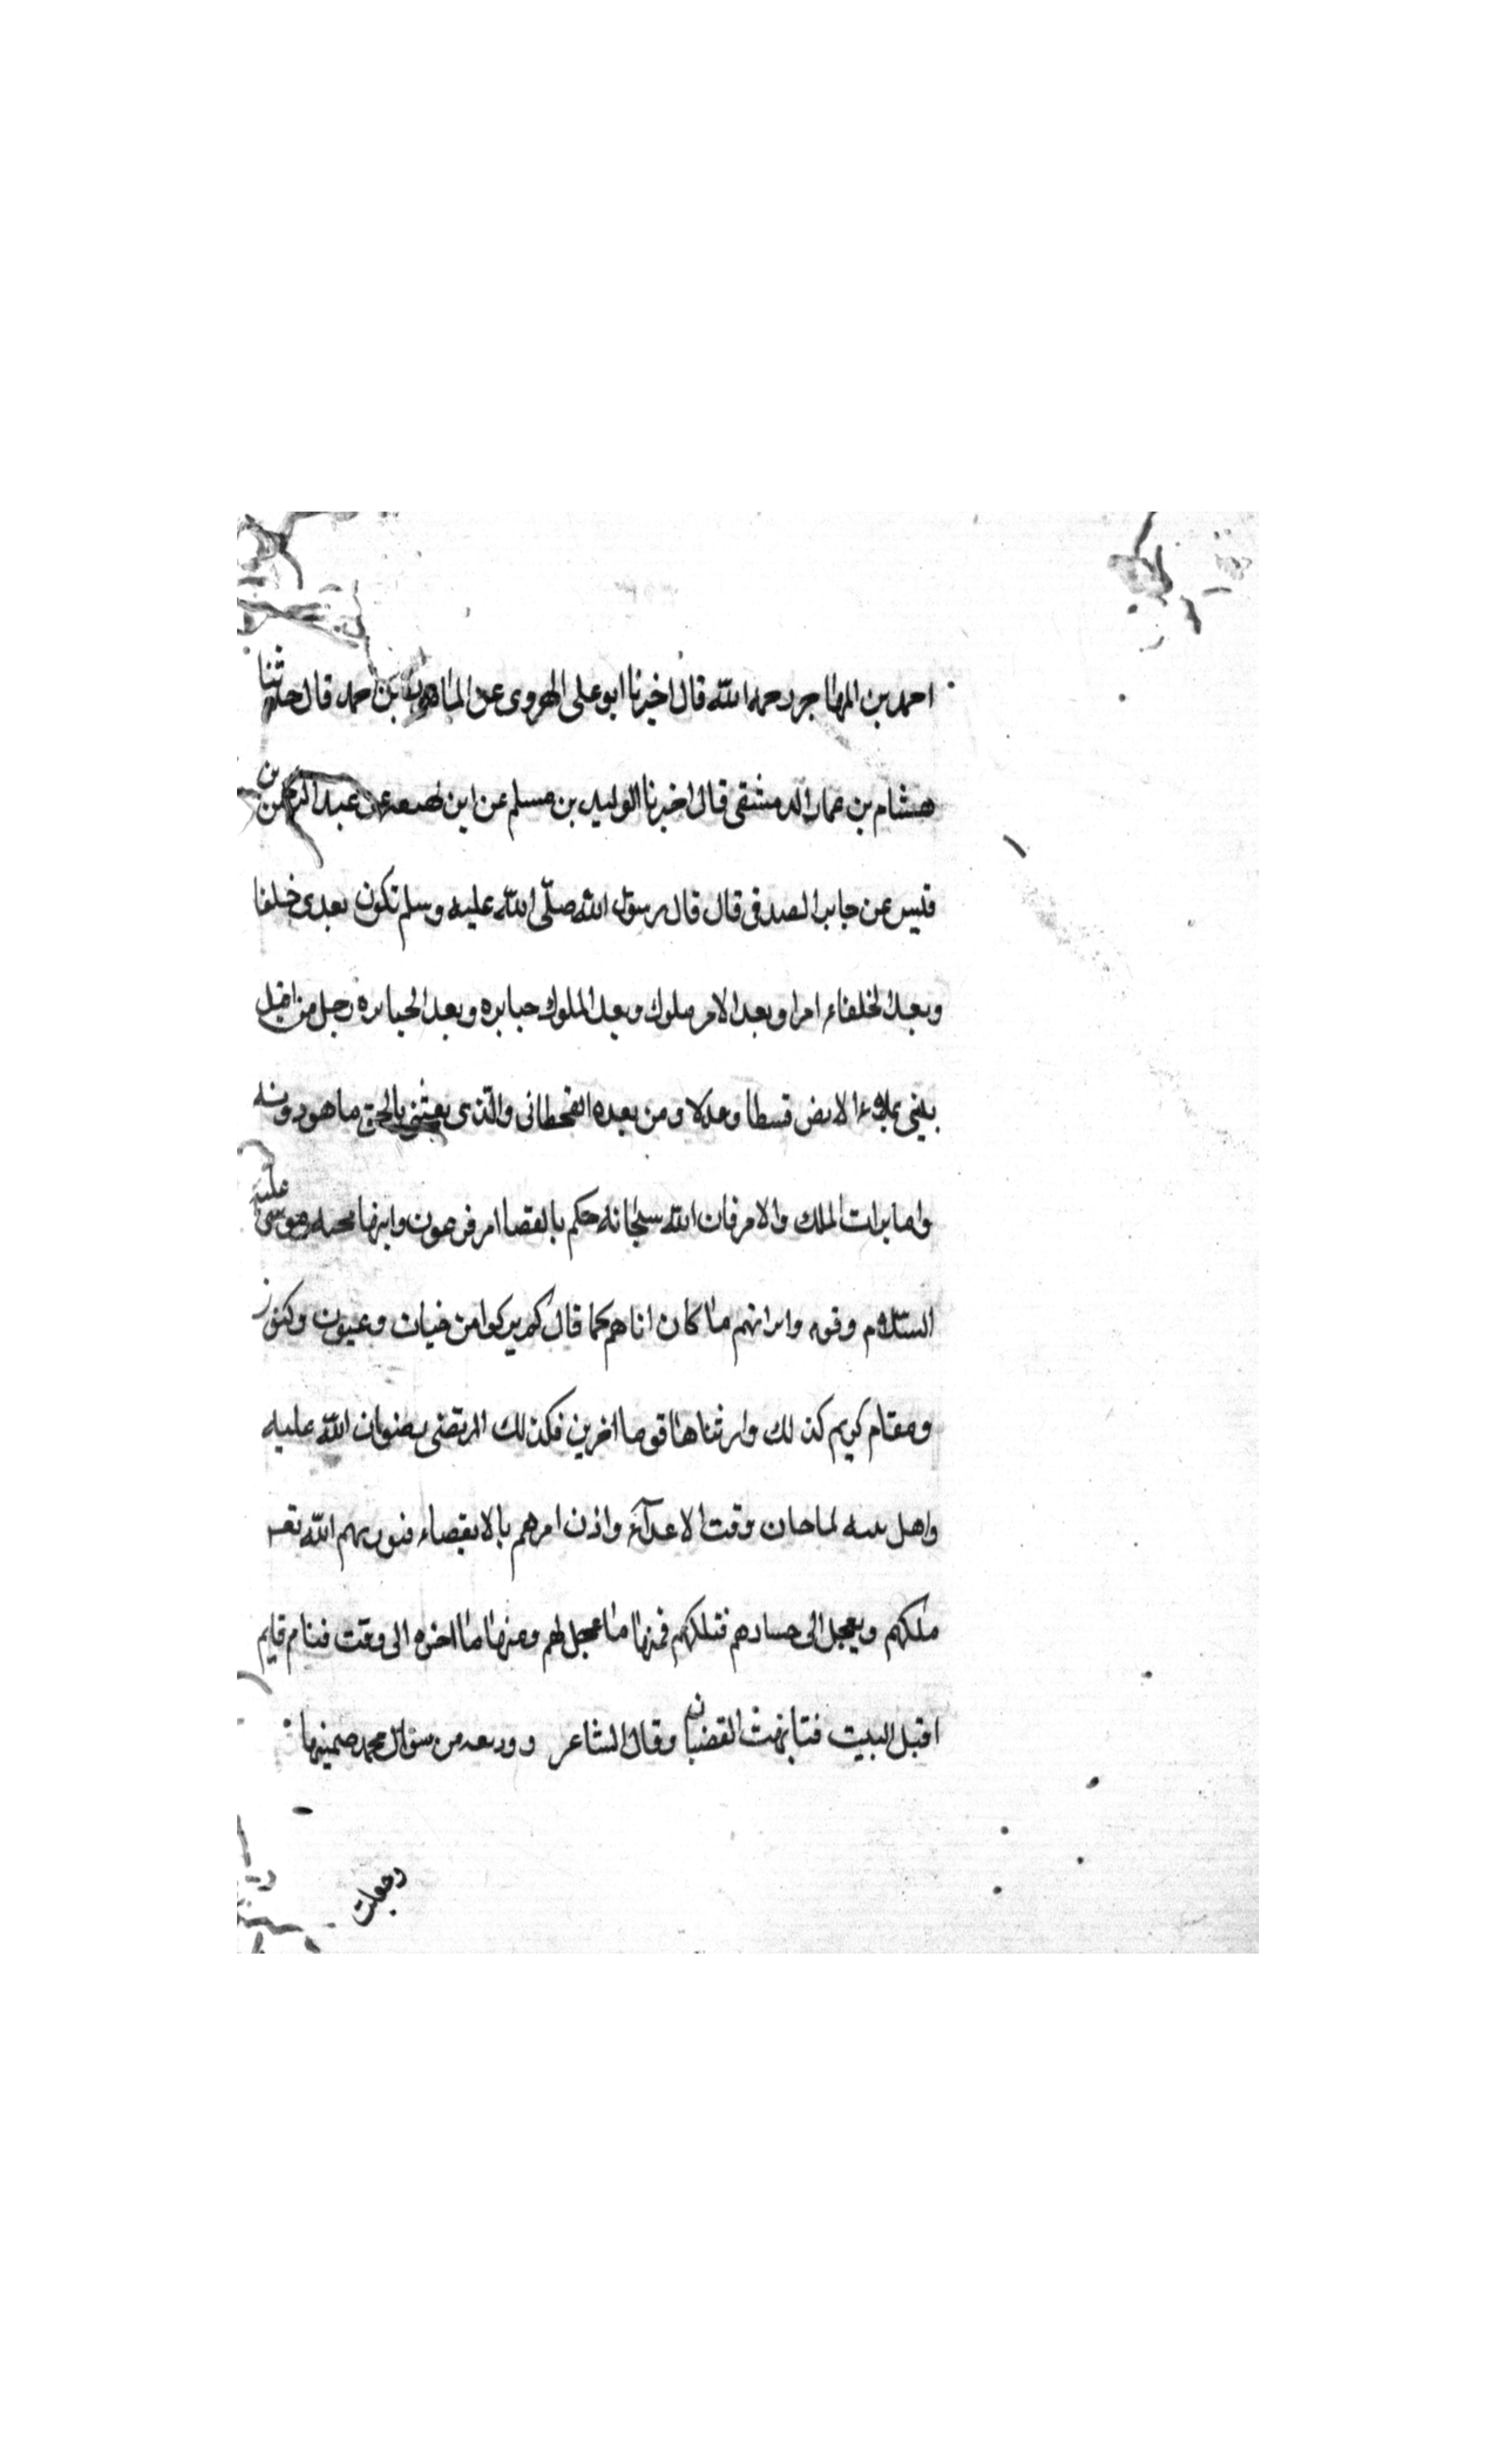 احمد بن المهاجر رحمه الله قال اخبرنا ابو على الهروى عن المامون بن احمد قال حدثنا
هشام بن عمار الدمشقى قال اخبرنا الوليد بن مسلم عن ابن لهيعه عن عبد الرحمن بن
قيس عن جابر الصدفى قال قال رسول الله صلّى الله عليه وسلم تكون بعدى خلفا
وبعد الخلفاء امرا وبعد الامر ملوك وبعد الملوك جبابره وبعد الجبابره رجل من اهل
بيتى يملاء الارض قسطا وعدلا ومن بعده القحطانى والذى بعثنى بالحق ما هو دونه
واما براث الملك والامر فان الله سبحانه حكم بانقصا امر فرعون موسى عليه
السلام وقومه ما كان اتاهم كما قال كم تركوا من جنات وعيون وكنوز
ومقام كريم كذلك واورثناها قوما اخرين فكذلك المرتضى رضوان الله عليه
واهل بيته لما حان وقت الاعدآء واذن امرهم بالانقضاء الله
ملكهم ويعجل الى حسادهم فمنها ما عجل لهم ومنها ما اخره الى وقت قيام قايم
اهل البيت وقال الشاعر من محمد
وجعلت